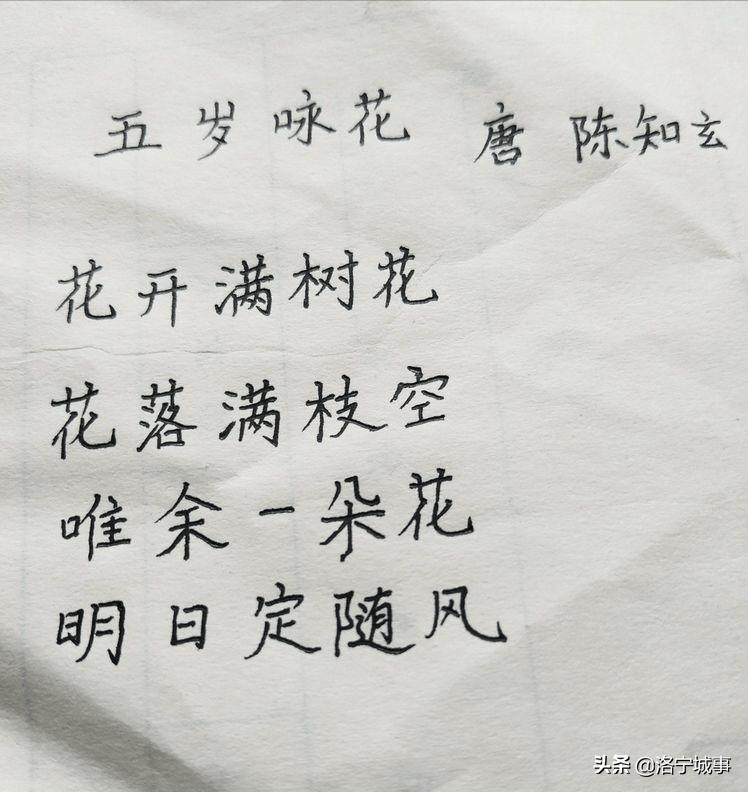 五岁咏花 唐 陈知玄
花开满树花
花落满枝空
唯余一朵花
明日定随风
头条 @洛宁城事